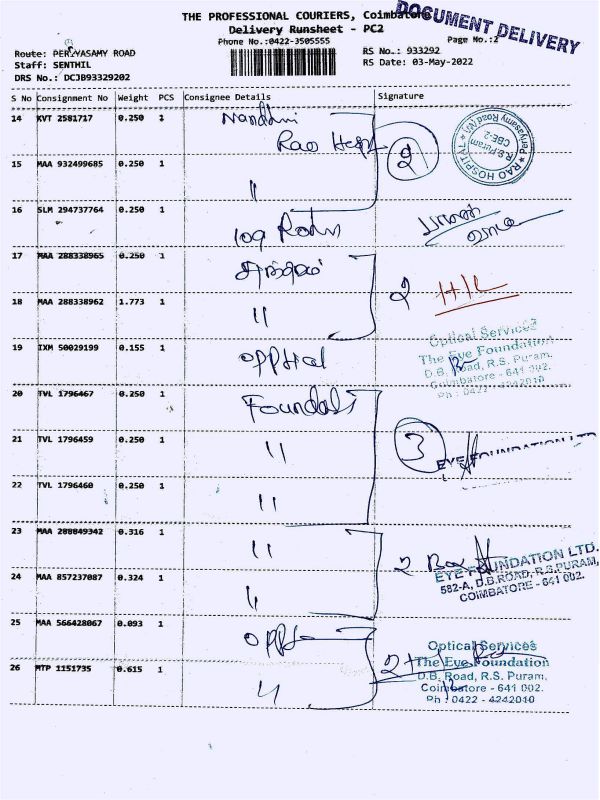 THE PROFESSIONAL COURIERS, Coimbatore
DOCUMENT DELIVERY
Delivery Runsheet - PC2
Phone No.:0422-3505555
Page No.:2
Route: PERIYASAMY ROAD
RS No.: 933292
Staff: SENTHIL
RS Date: 03-May-2022
DRS No.: DCJB93329202
S No Consignment No Weight PCS Consignee Details Signature
14 KVT 2581717 0.250 1 Nandhini
Rao Hosp 2
RAO HOSPITAL
R.S.Puram
CBE-2
15 MAA 932499685 0.250 1 "
16 SLM 294737764 0.250 1
17 MAA 288338965 0.250 1
18 MAA 288338962 1.773 1 " 2
19 IXM 50029199 0.155 1 Optical
Optical Services
The Eye Foundation
D.B. Road, R.S. Puram,
Coimbatore - 641 002.
Ph : 0422 - 4242010
20 TVL 1796467 0.250 1
21 TVL 1796459 0.250 1 " 3 EYE FOUNDATION LTD
22 TVL 1796460 0.250 1 "
23 MAA 288849342 0.316 1 " 2 Box
EYE FOUNDATION LTD.
582-A, D.B.ROAD, R.S.PURAM,
COIMBATORE - 641 002.
24 MAA 857237087 0.324 1 "
25 MAA 566428067 0.093 1
Optical Services
The Eye Foundation
D.B. Road, R.S. Puram,
Coimbatore - 641 002.
Ph : 0422 - 4242010
26 MTP 1151735 0.615 1 "